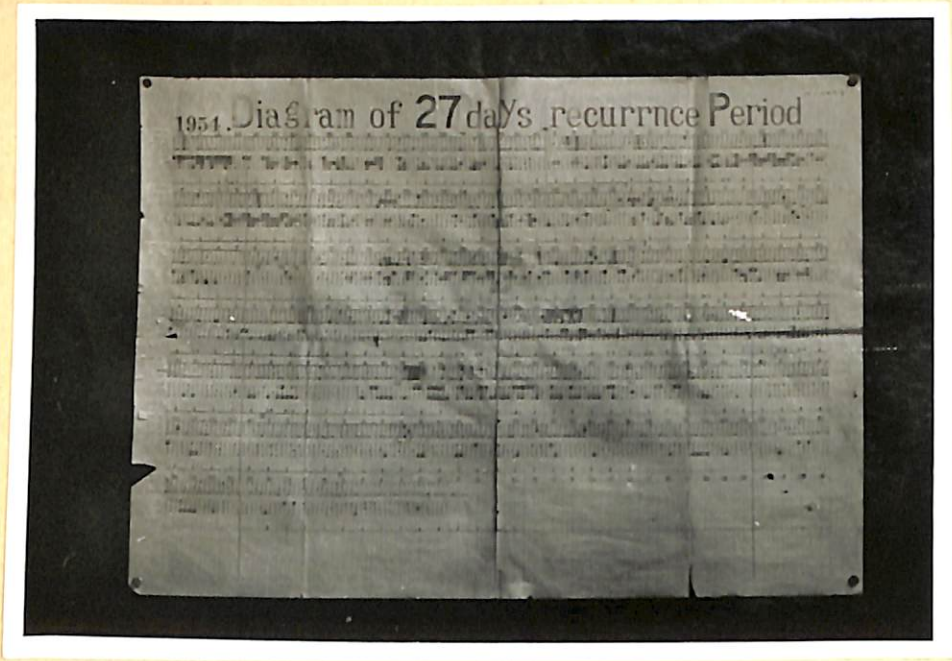 1954. Diagram of 27 days recurrnce Period